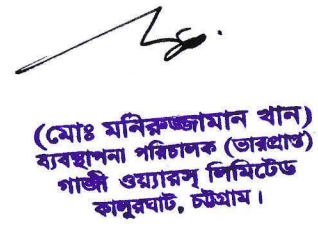 (মোঃ মনিরুজ্জামান খান)
ব্যবস্থাপনা পরিচালক (ভারপ্রাপ্ত)
গাজী ওয়্যারস্ লিমিটেড
কালুরঘাট, চট্টগ্রাম।